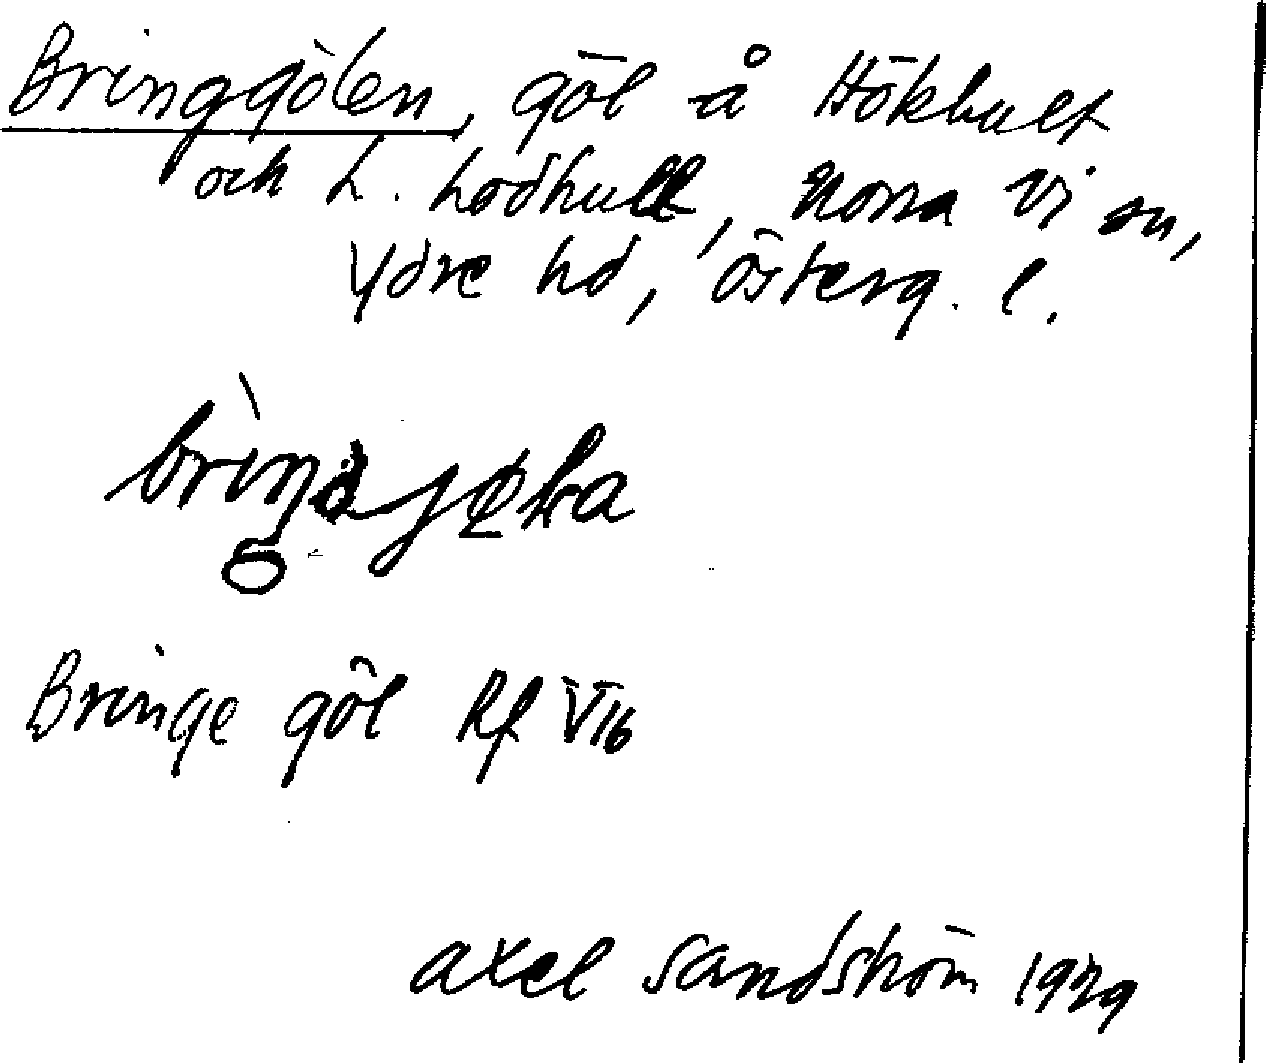 Bringgölen, göl å Hökhult
och L. Lodhult, Norra Vi sn,
Ydre hd, Österg. l.
Bringe göl Rf VI6
Axel Sandström 1929